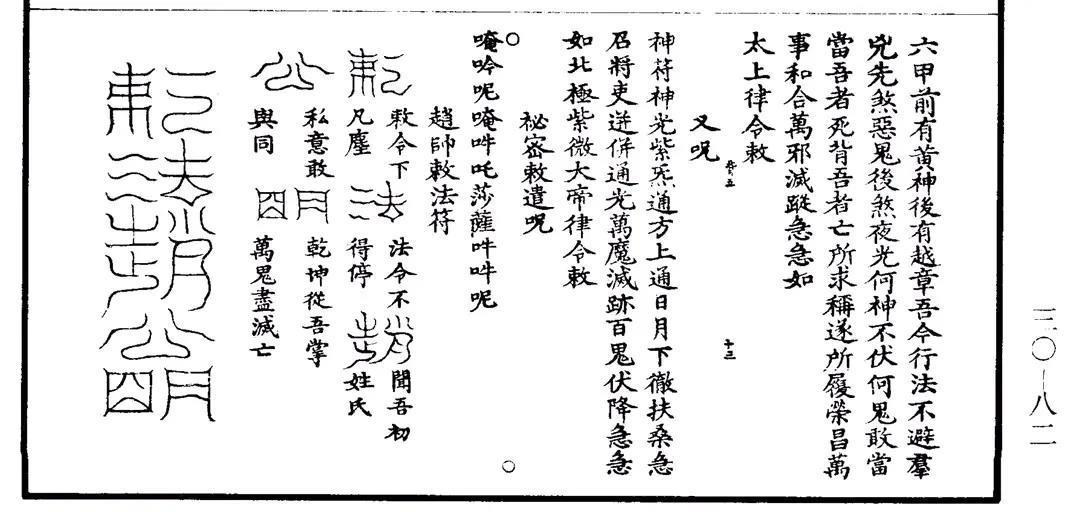 六甲前有黃神後有越章吾今行法不避羣
兇先煞惡鬼後煞夜光何神不伏何鬼敢當
當吾者死背吾者亡所求稱遂所履榮昌萬
事和合萬邪滅蹤急急如
太上律令敕
又呪
十三
神符神光紫炁通方上通日月下徹扶桑急
召將吏迸併通光萬魔滅跡百鬼伏降急急
如北極紫微大帝律令敕
祕密敕遣呪
唵吟呢唵吽吒莎薩吽吽呢
趙帥敕法符
敕令下
法令不
聞吾初
凡塵
得停
姓氏
私意敢
乾坤從吾掌
與同
萬鬼盡滅亡
三〇-八二